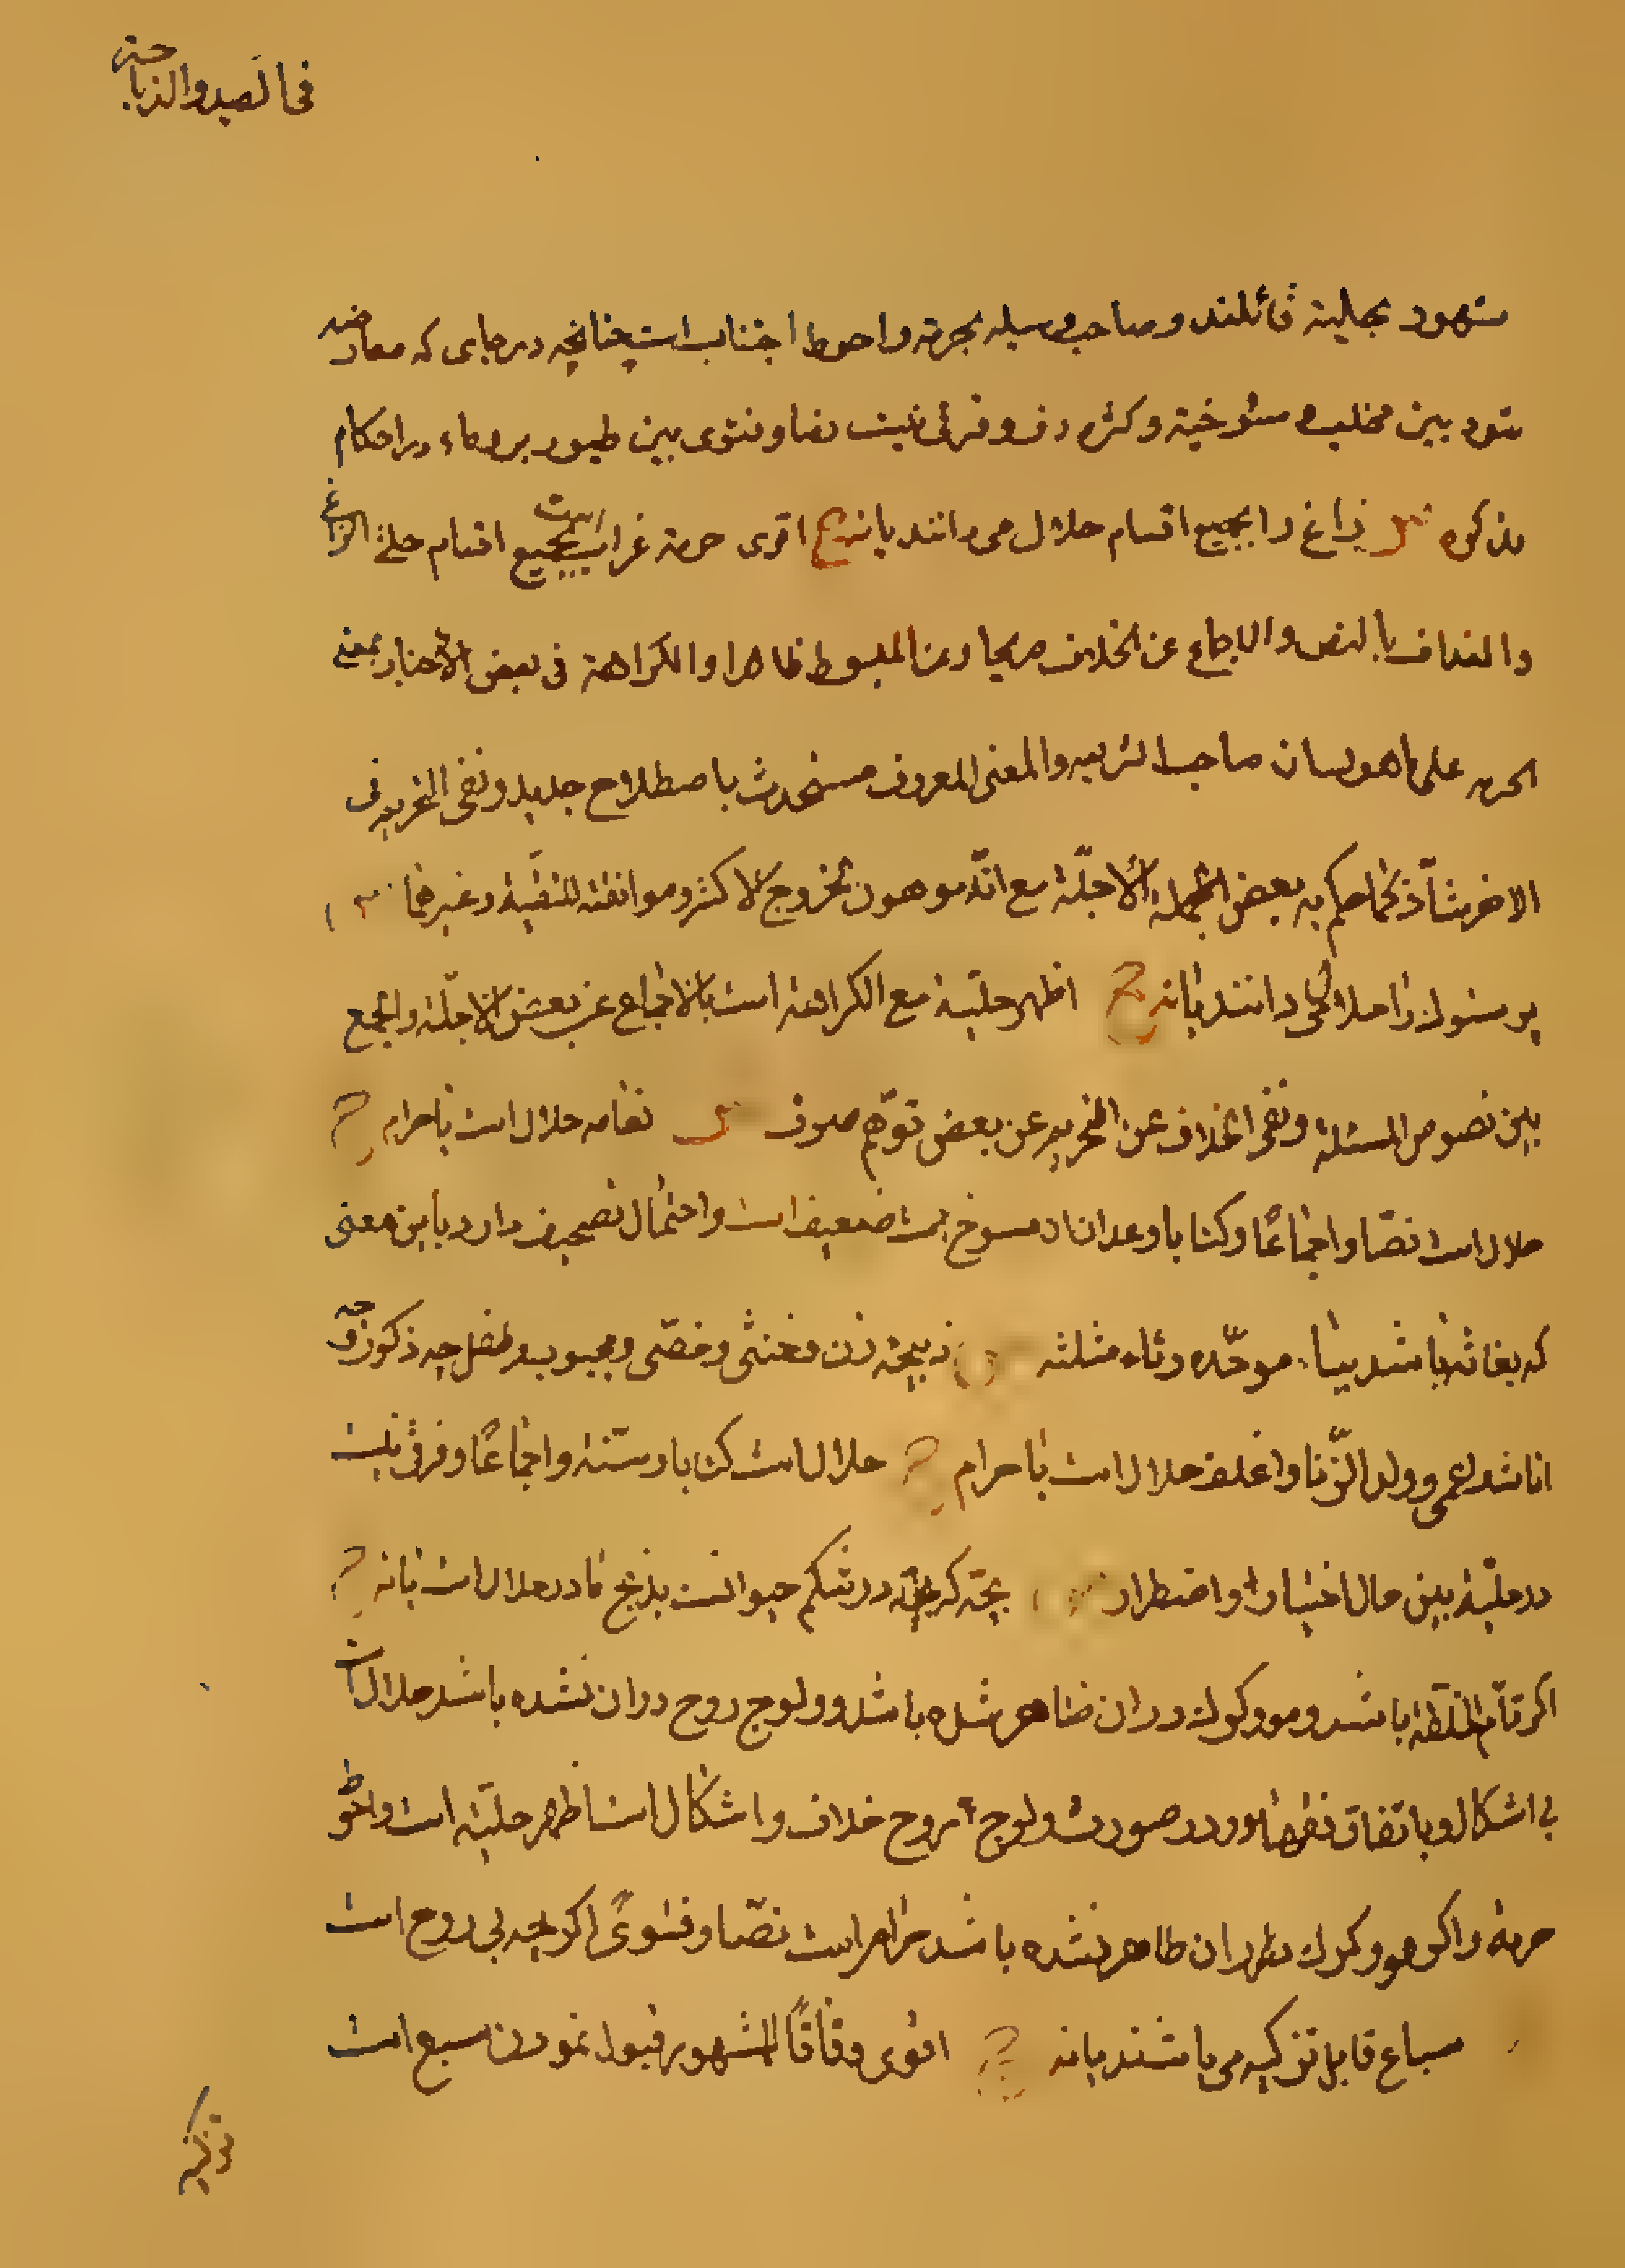 فی الصید والذباحة
مشهور بحلیته قائلند و صاحب وسیله بحرمة و احوط اجتناب است چنانچه در جای که معارضه
شود بین مخلب و سنوخیة و کثره دف و فرقی نیست نصا و فتوی بین طیور بر و ماء در احکام
مذکوره س زاغ را بجمیع اقسام حلال می دانند یا نه ج اقوی حرمة غراب است بجمیع اقسام حتی الزاغ
والغداف بالنص والاجماع عن الخلاف صریحا و عن المبسوط ظاهرا والکراهة فی بعض الأخبار بمعنی
الحرمه علی ماهو لسان صاحب الشریعه والمعنی المعروف مستحدث باصطلاح جدید و نفی التحریم فی
الاخر شاذ کما حکم به بعض الأجلّة مع انّه موهون بخروج الاکثر و موافقته للتقیّة و غیرهما س
پرستوك را حلال می دانند یا نه ج اظهر حلّیة مع الکراهة است بالاجماع عن بعض الاجلّة والجمع
بین نصوص المسئلة و نفی الخلاف عن التحریم عن بعض توهّم صرف س نعامه حلال است یا حرام ج
حلال است نصّا و اجماعًا و کتابا و عد ان از مسوخ ضعیف است و احتمال تصحیف دارد باین معنی
که بغاثه باشد بباء موحّده و ثاء مثلثه س ذبیحه زن و خنثی و خصّی و مجبوب و طفل چه ذکور و چه
اناث و اعمی و ولد الزّنا و اغلف حلال است یا حرام ج حلال است کتابا و سنّة و اجماعًا و فرقی نیست
در حلیّة بین حال اختیار و اضطرار س بچّه که در شکم حیوانست بذبح مادر حلال است یا نه ج
اکر تامّ الخلقه باشد و مو و کرك در ان ظاهر شده باشد و ولوج روح در ان نشده باشد حلال است
بی اشکال و باتفاق فقهاء و در صورت ولوج روح خلاف و اشکال است اظهر حلیّة است و احوط
حرمة و اکر مو و کرك در ان ظاهر نشده باشد حرام است نصّا و فتویً اکرچه بی روح است
سباع قابل تزکیه می باشند یا نه ج اقوی وفاقًا للمشهور قبول نمودن سبع است
تزکیه